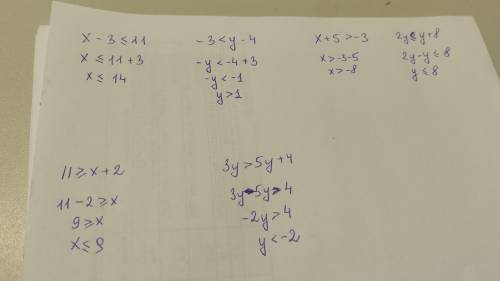 x - 3 ≤ 11
x ≤ 11 + 3
x ≤ 14
- 3 < y - 4
- y < - 4 + 3
- y < - 1
y > 1
x + 5 > - 3
x > - 3 - 5
x > - 8
2y ≤ y + 8
2y - y ≤ 8
y ≤ 8
11 ≥ x + 2
11 - 2 ≥ x
9 ≥ x
x ≤ 9
3y > 5y + 4
3y - 5y > 4
- 2y > 4
y < - 2